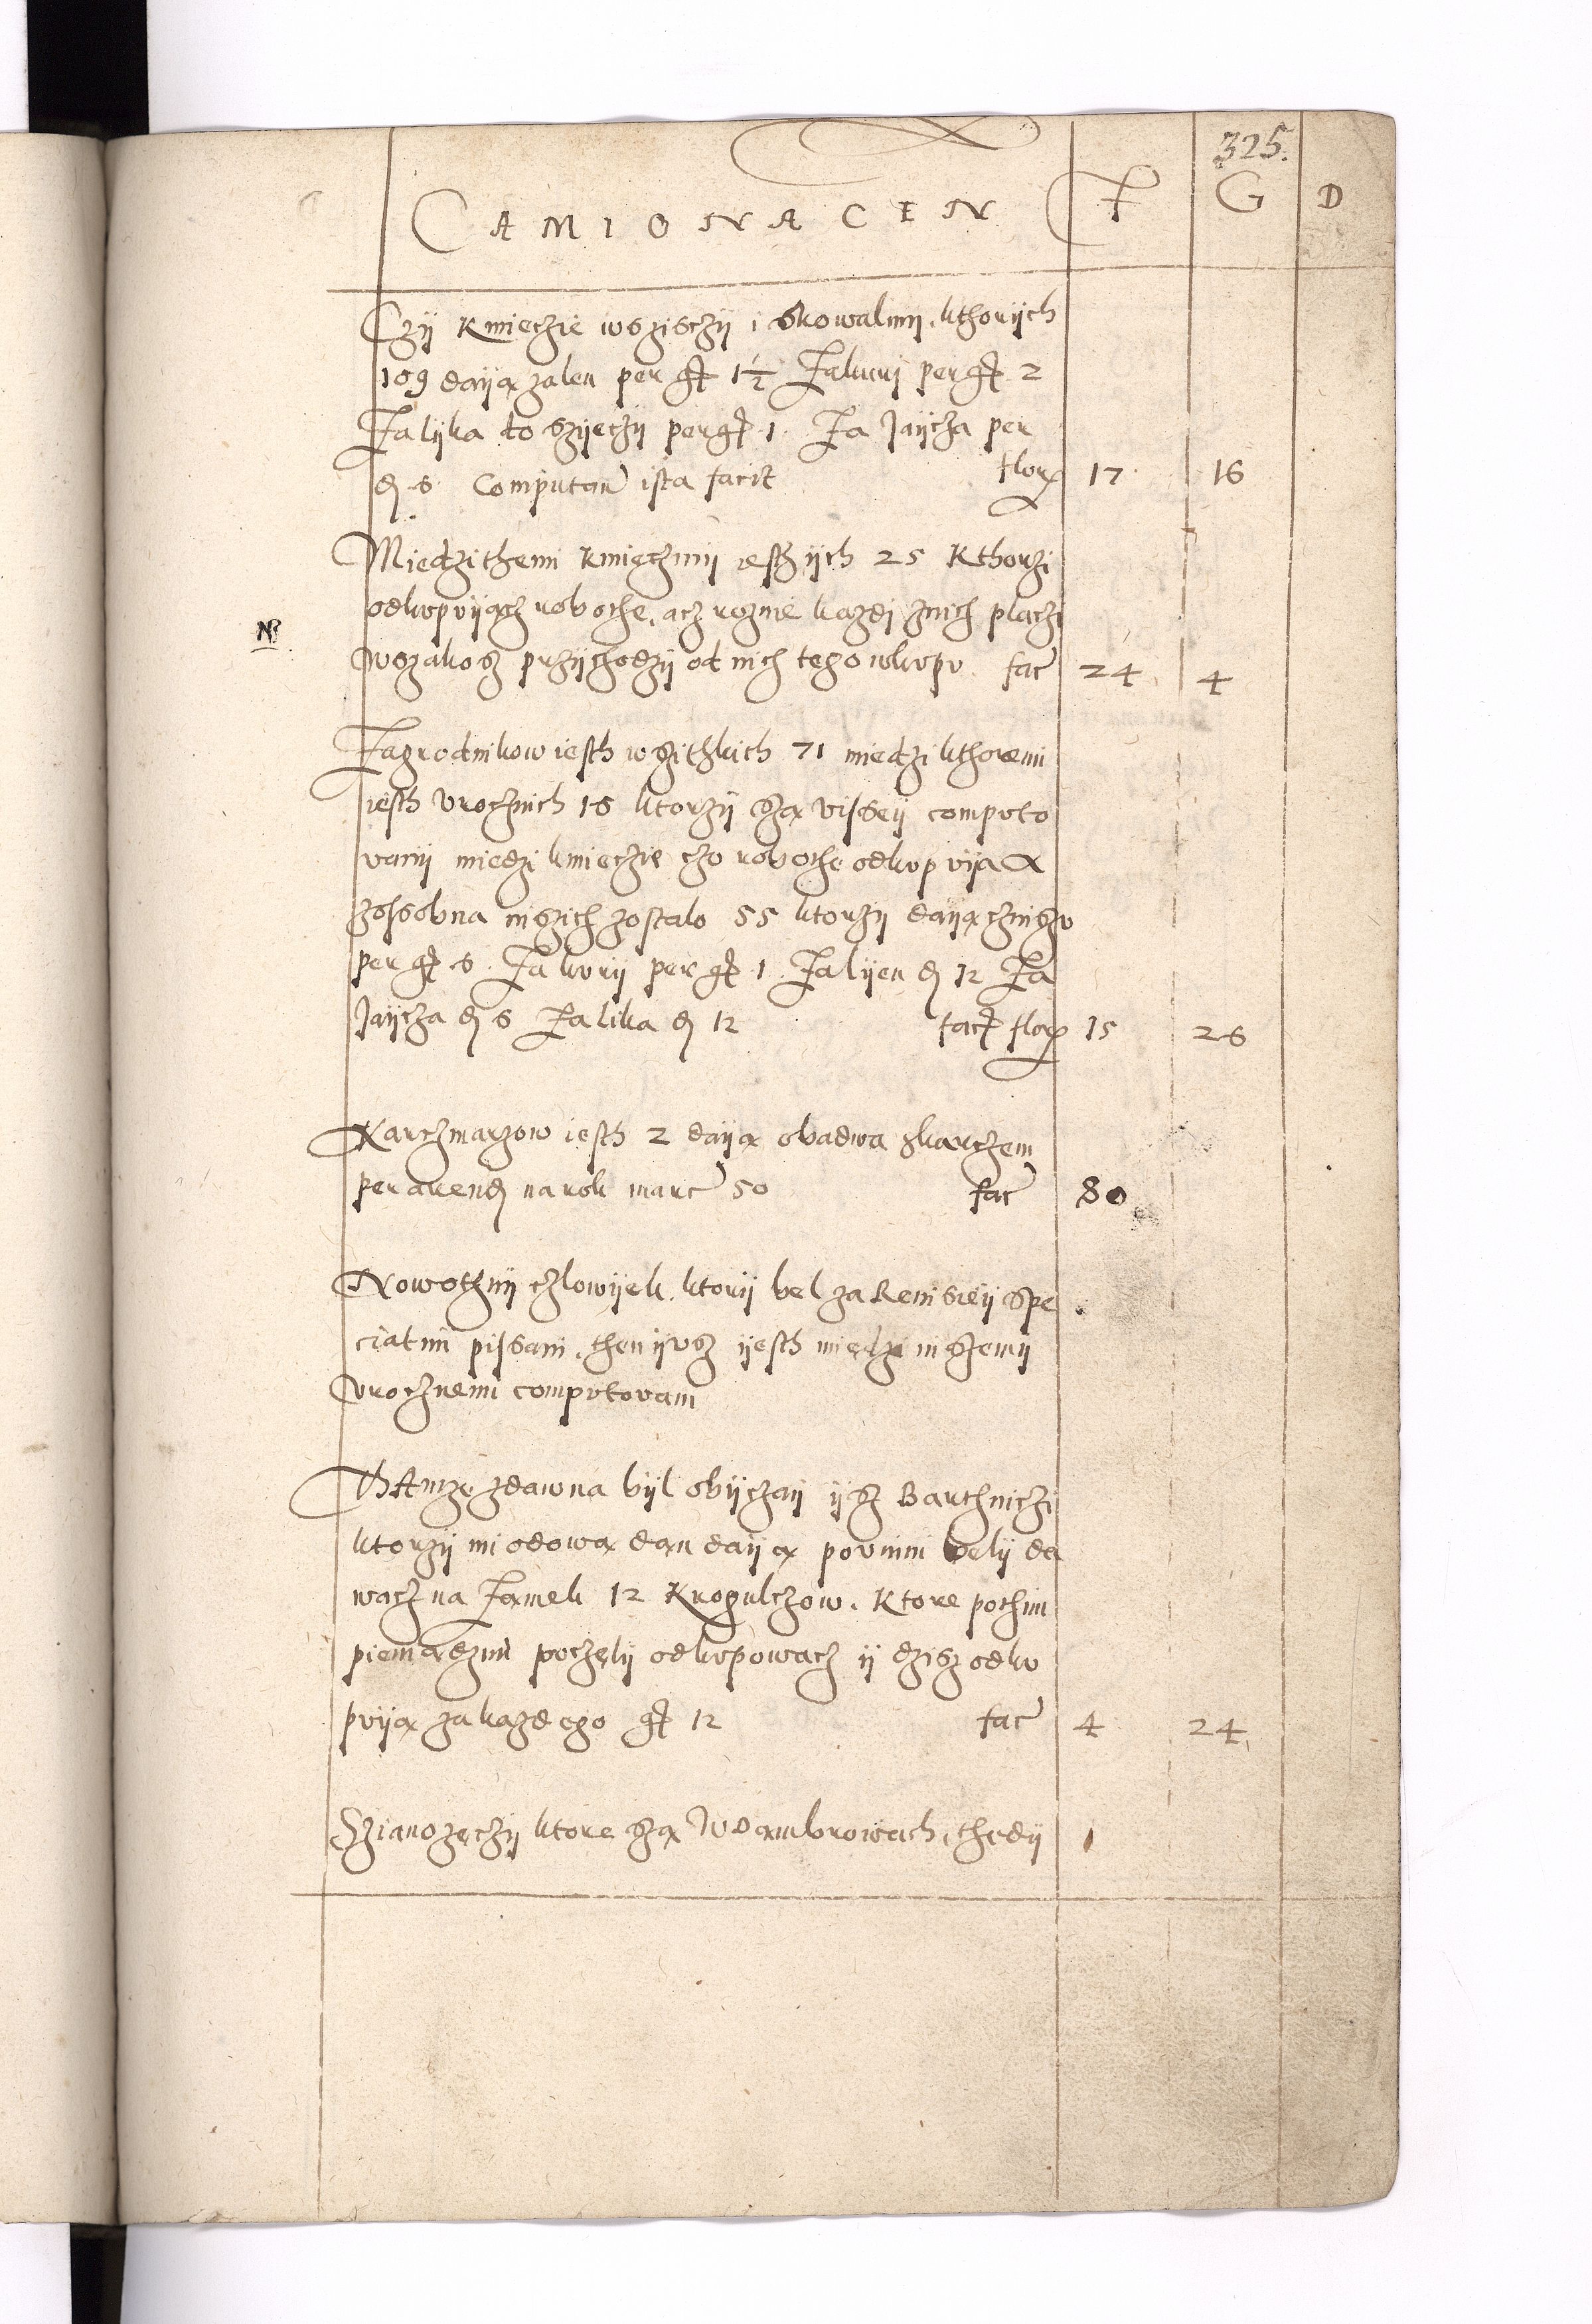 325.
CAMIONACEN F G D
Czij Kmieczie wszisczij i skowalmij, kthorijch
109 daija za len per gr 1½ Za kurij per gr 2
Za lijka to szijeczij per gr 1. Za Jaijcza per
d 6 Computan ista facit flor 17 16
Miedzi themi Kmieczmij iest ijch 25 Kthorzi
odkupvijącz robothe, acz roznie kazdi z nich placzi
N
wszakosz przijchodzij od nich tego wkupv fac 24 4
Zagrodnikow iesth wszithkich 71 miedzi kthoremi
iesth vrocznich 16 ktorzij sza visseij compvto
vanij miedzi kmieczie czo robothe odkvpvija A
zossobna inszich zostalo 55 ktorzij daija czinszv
per gr 6. Za kvrij per gr 1. Za lijen d 12 Za
Jaijcza d 6 Za lika d 12 facit flor 15 26
Karczmarzow iesth 2 daija obadwa z karczem
per arend na rok marc 50 fac 80
Nowothnij czlowijek, ktorij bel za Remissiej spe
ciatim pissani, then ijvsz ijesth miedzi inszemij
vrocznemi compvtovani
Thamze zdawna bijl obijczaij ijsz Barthniczi
ktorzij miodowa dan daija povinni belij da
wacz na Zamek 12 Krogulczow, Ktore pothim
pieniadzmi poczelij odkvpowacz ij dzisz odkv
pvija za kazdego gr 12 fac 4 24
Szianozeczij ktore sza W Dambrowach, thedij